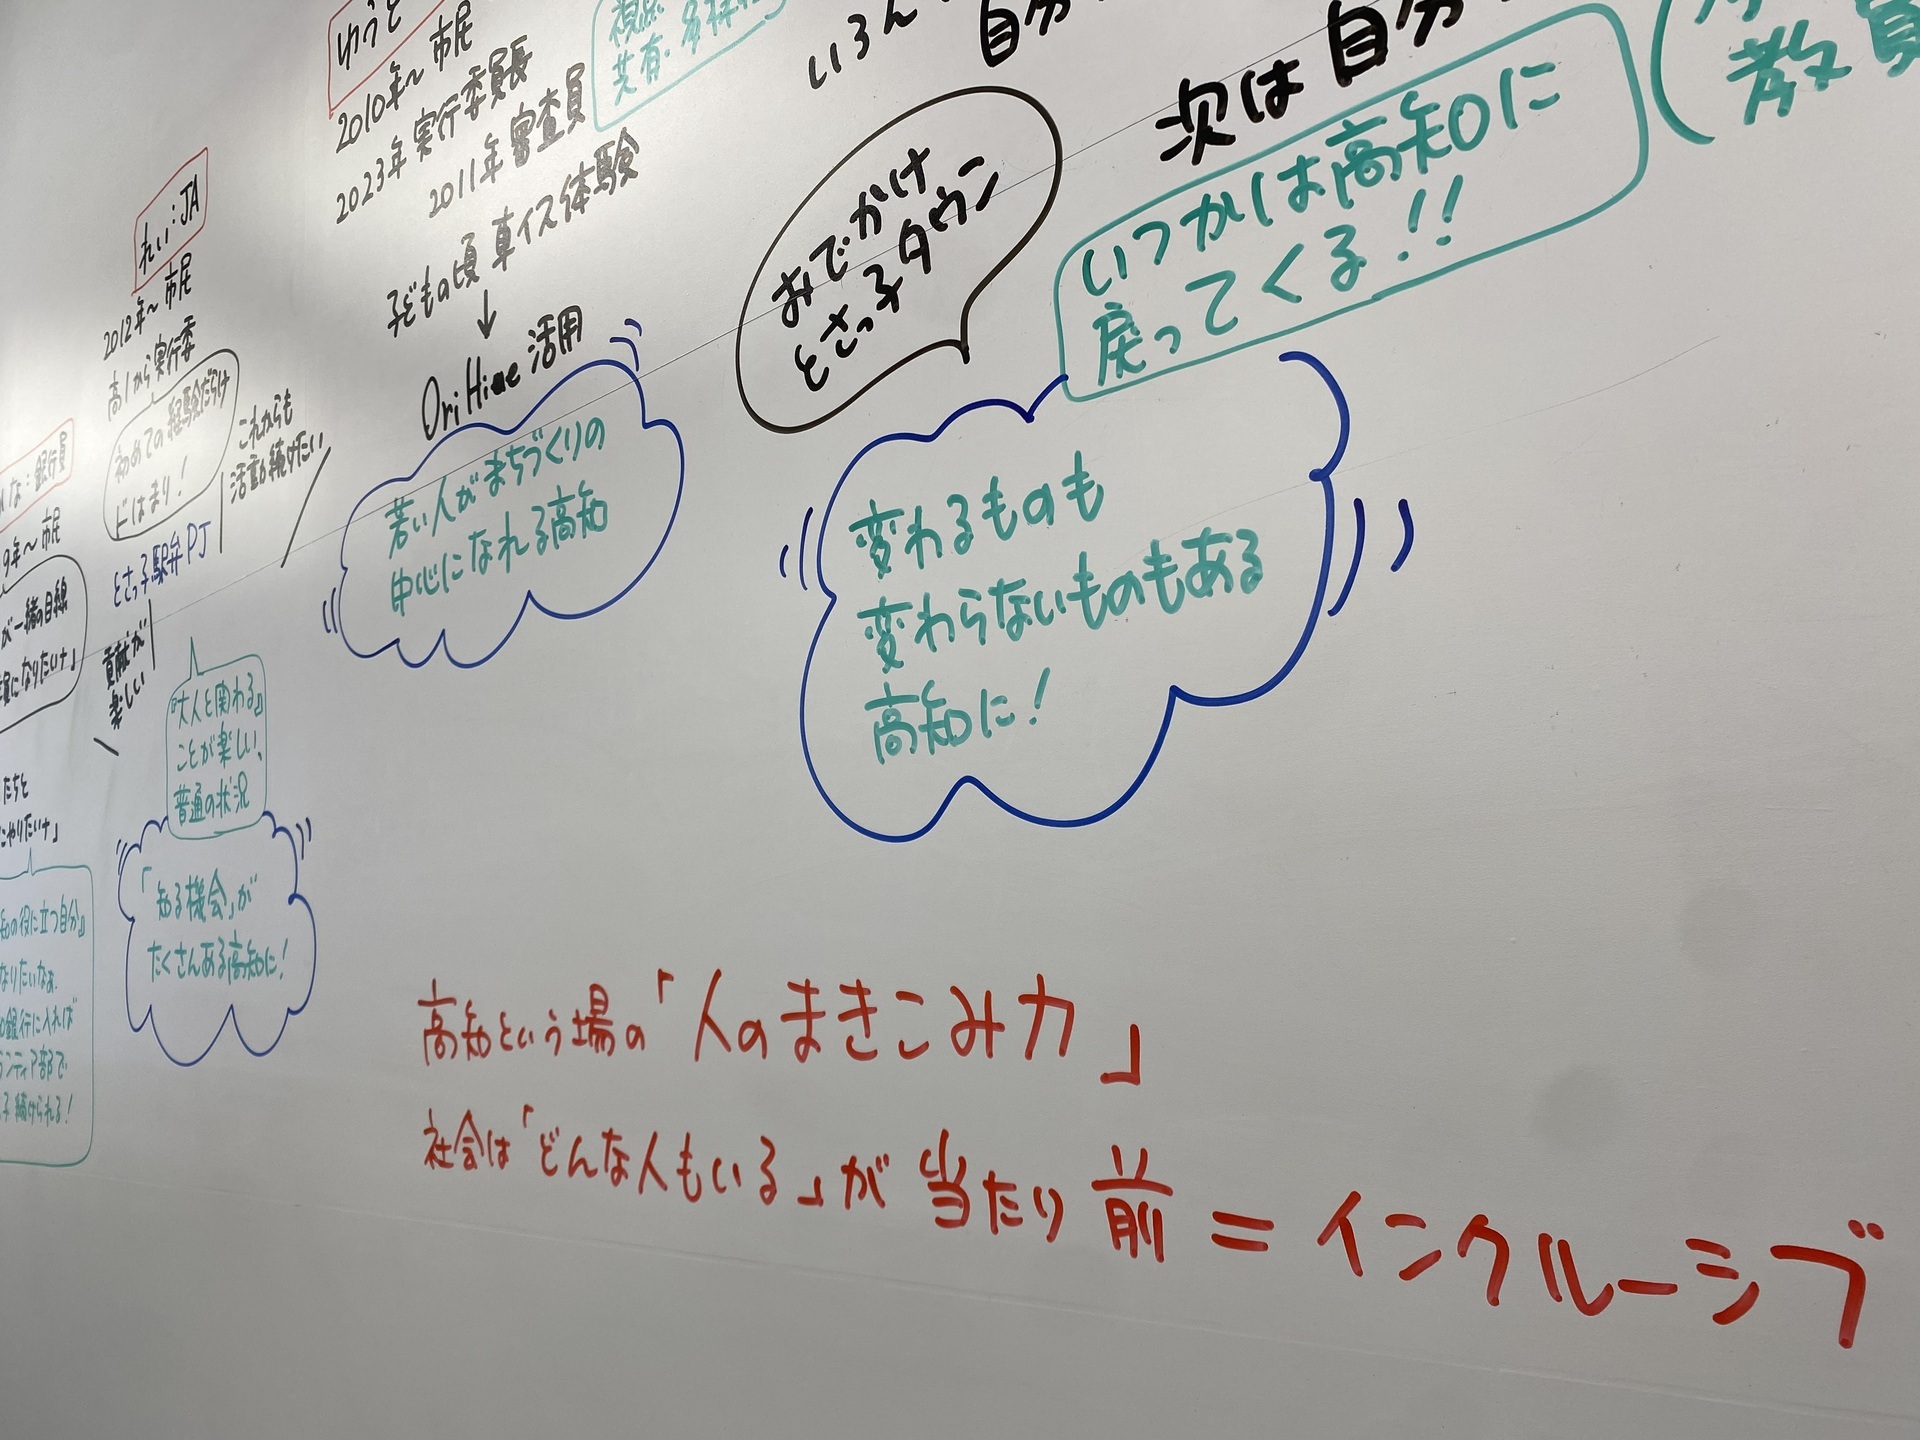 な：銀行員
9年〜市民
が一緒の目線
員になりたいナ」
たちと
にやりたいナ」
知の役に立つ自分』
なりたいなぁ。
銀行に入れば
ランティア部で
子続けられる！
れい：JA
2012年〜市民
高1から実行委
初めての経験だらけ
ドはまり！
これからも
活動続けたい
とさっ子駅弁PJ
貢献が
楽しい
『大人と関わる』
ことが楽しい、
普通の状況
「知る機会」が
たくさんある高知に！
ゆうと
2010年〜市民
2023年実行委員長
2011年審査員
子どもの頃 車イス体験
↓
OriHime 活用
視点
共有・多様
若い人がまちづくりの
中心になれる高知
いろん
自分
おでかけ
とさっ子タウン
次は自分
いつかは高知に
戻ってくる!!
教員
変わるものも
変わらないものもある
高知に！
高知という場の「人のまきこみ力」
社会は「どんな人もいる」が当たり前＝インクルーシブ